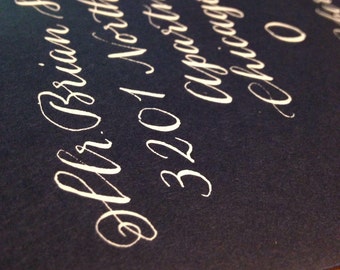 Mr. Brian
3201 North
Apartm
Chicago